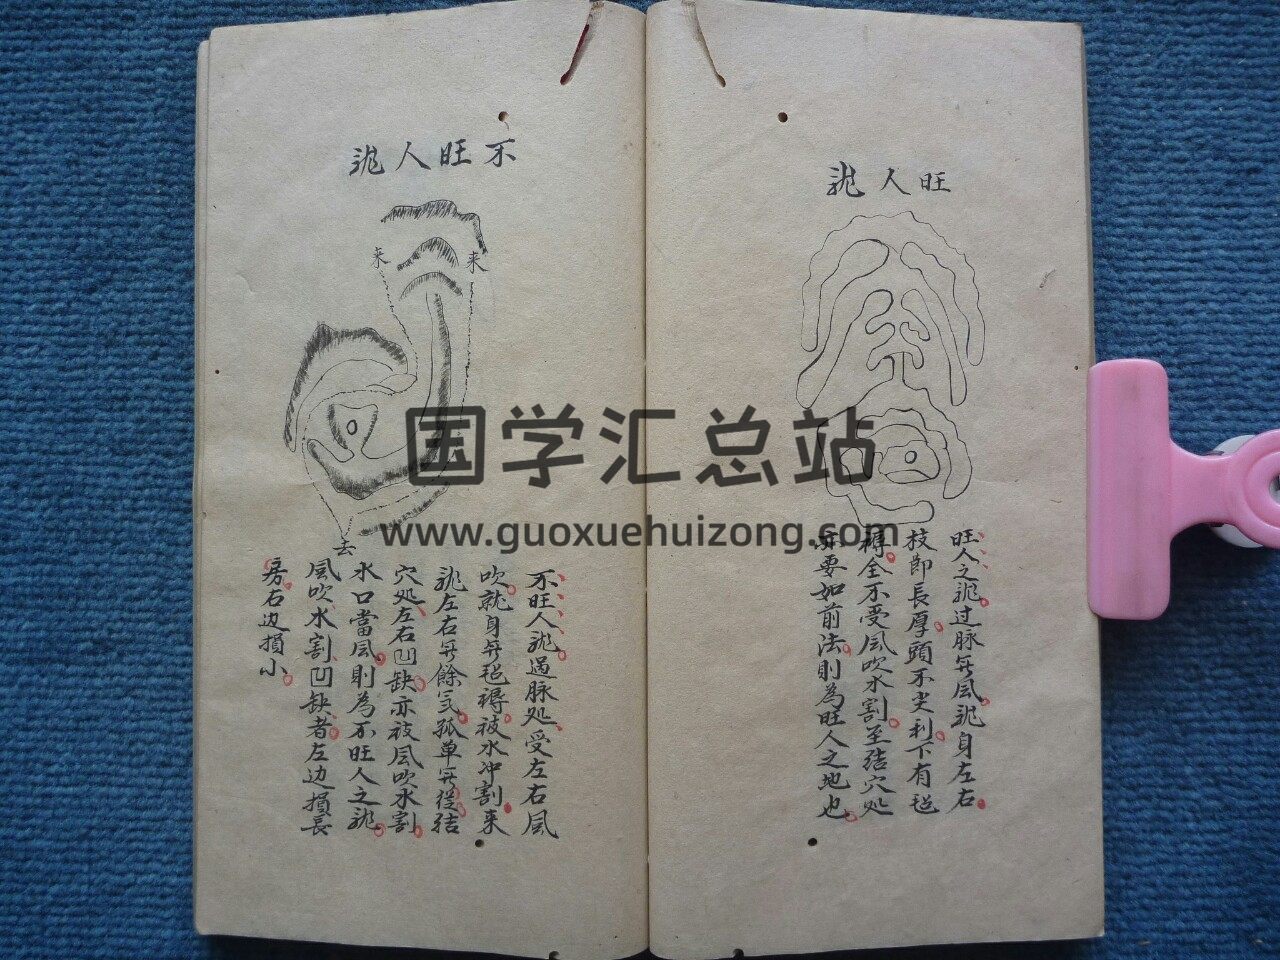 旺人龍
旺人之龍过脉无風龍身左右
枝節長厚頭不尖利下有毯
褥全不受風吹水割至结穴处
亦要如前法則為旺人之地也
不旺人龍
来
来
去
不旺人龍過脉处受左右風
吹龍身无毯褥被水冲割来
龍左右无餘氣孤单无從结
穴处左右凹缺亦被風吹水割
水口當風則為不旺人之龍
風吹水割凹缺者左边損長
房右边損小
国学汇总站
www.guoxuehuizong.com